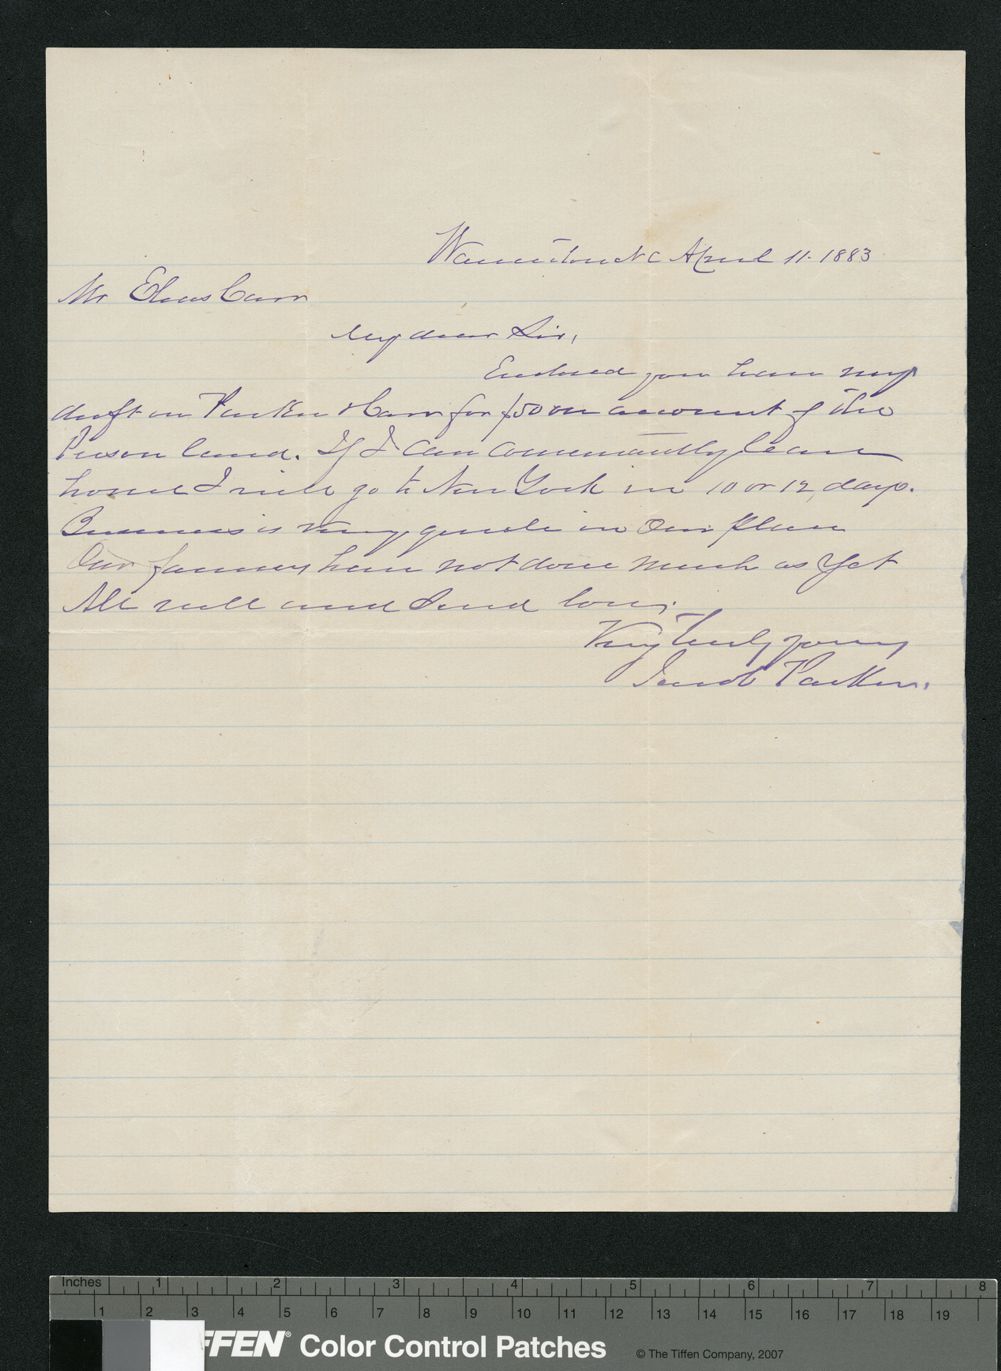 Warrenton N C April 11. 1883
Mr Elias Carr
My dear Sir,
Enclosed you have my
draft on Parker & Carr for $50 on account of the
Person land. If I can conveniently leave
home I will go to New York in 10 or 12, days.
Business is very quite in Our place
Our farmers have not done much as yet
All well and send love.
Very truly yours
Jacob Parker.
Inches 1 2 3 4 5 6 7 8
1 2 3 4 5 6 7 8 9 10 11 12 13 14 15 16 17 18 19
FFEN® Color Control Patches © The Tiffen Company, 2007